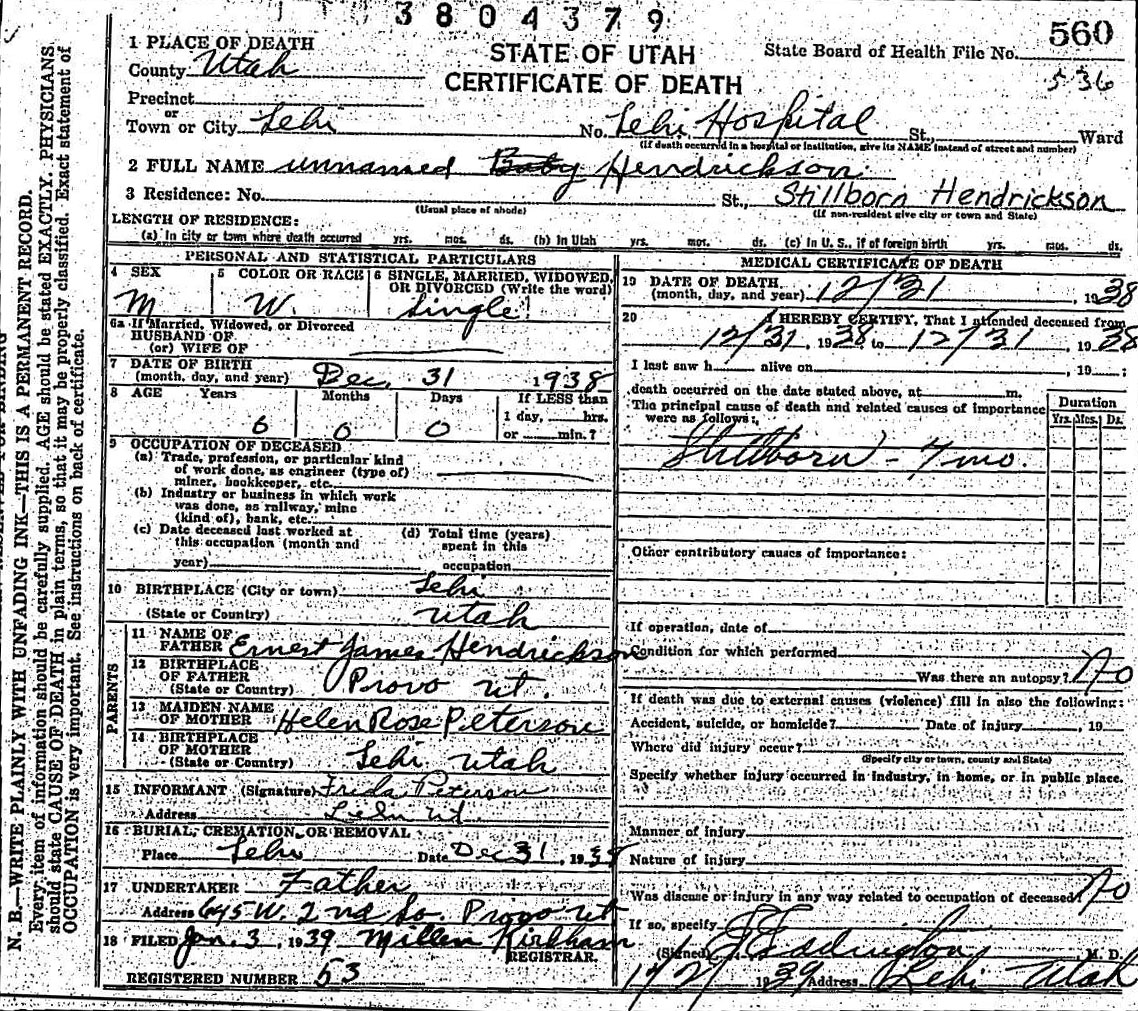 3804379
560
STATE OF UTAH
CERTIFICATE OF DEATH
State Board of Health File No.
536
1 PLACE OF DEATH
County Utah
Precinct
or
Town or City Lehi No. Lehi Hospital St., Ward
(If death occurred in a hospital or institution, give its NAME instead of street and number)
2 FULL NAME unnamed Baby Hendrickson
3 Residence: No. St., Stillborn Hendrickson
(Usual place of abode) (If non-resident give city or town and State)
LENGTH OF RESIDENCE:
(a) In city or town where death occurred yrs. mos. ds. (b) In Utah yrs. mos. ds. (c) In U. S., if of foreign birth yrs. mos. ds.
PERSONAL AND STATISTICAL PARTICULARS
4 SEX 5 COLOR OR RACE 6 SINGLE, MARRIED, WIDOWED,
OR DIVORCED (Write the word)
M W. Single
6a If Married, Widowed, or Divorced
HUSBAND OF
(or) WIFE OF
7 DATE OF BIRTH
(month, day, and year) Dec. 31 1938
8 AGE Years Months Days If LESS than
1 day, hrs.
6 0 0 or min.?
9 OCCUPATION OF DECEASED
(a) Trade, profession, or particular kind
of work done, as engineer (type of)
miner, bookkeeper, etc.
(b) Industry or business in which work
was done, as railway, mine
(kind of), bank, etc.
(c) Date deceased last worked at
this occupation (month and
year)
(d) Total time (years)
spent in this
occupation
10 BIRTHPLACE (City or town) Lehi
(State or Country) Utah
PARENTS
11 NAME OF
FATHER Ernest James Hendrickson
12 BIRTHPLACE
OF FATHER
(State or Country) Provo Ut.
13 MAIDEN NAME
OF MOTHER Helen Rose Peterson
14 BIRTHPLACE
OF MOTHER
(State or Country) Lehi Utah
15 INFORMANT (Signature) Frida Peterson
Address Lehi Ut.
16 BURIAL, CREMATION, OR REMOVAL
Place Lehi Date Dec 31, 1938
17 UNDERTAKER Father
Address 645 W. 2nd So. Provo Ut
18 FILED Jan. 3, 1939 Millen Kirkham
REGISTRAR.
REGISTERED NUMBER 53
MEDICAL CERTIFICATE OF DEATH
19 DATE OF DEATH
(month, day, and year) 12/31, 1938
20 I HEREBY CERTIFY, That I attended deceased from
12/31, 1938, to 12/31, 1938
I last saw h alive on , 19 ;
death occurred on the date stated above, at m.
The principal cause of death and related causes of importance
were as follows:
Duration
Yrs. Mos. Ds.
Stillborn - 7 mo.
Other contributory causes of importance:
If operation, date of
Condition for which performed
Was there an autopsy? No
If death was due to external causes (violence) fill in also the following:
Accident, suicide, or homicide? Date of injury , 19
Where did injury occur?
(Specify city or town, county and State)
Specify whether injury occurred in industry, in home, or in public place.
Manner of injury
Nature of injury
Was disease or injury in any way related to occupation of deceased? No
If so, specify
(Signed) Eddington M. D.
1/2/ 1939 Address Lehi Utah
N. B.—WRITE PLAINLY WITH UNFADING INK—THIS IS A PERMANENT RECORD.
Every item of information should be carefully supplied. AGE should be stated EXACTLY. PHYSICIANS
should state CAUSE OF DEATH in plain terms, so that it may be properly classified. Exact statement of
OCCUPATION is very important. See instructions on back of certificate.